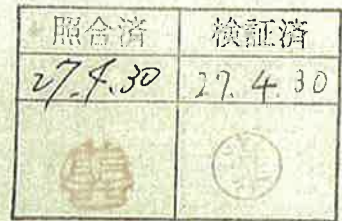 照合済 検証済
27.4.30 27.4.30